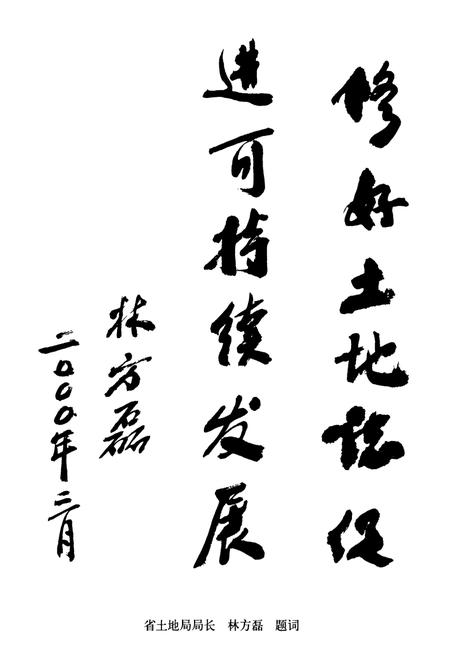 修好土地誌促
进可持续发展
林方磊
二〇〇〇年二月
省土地局局长 林方磊 题词